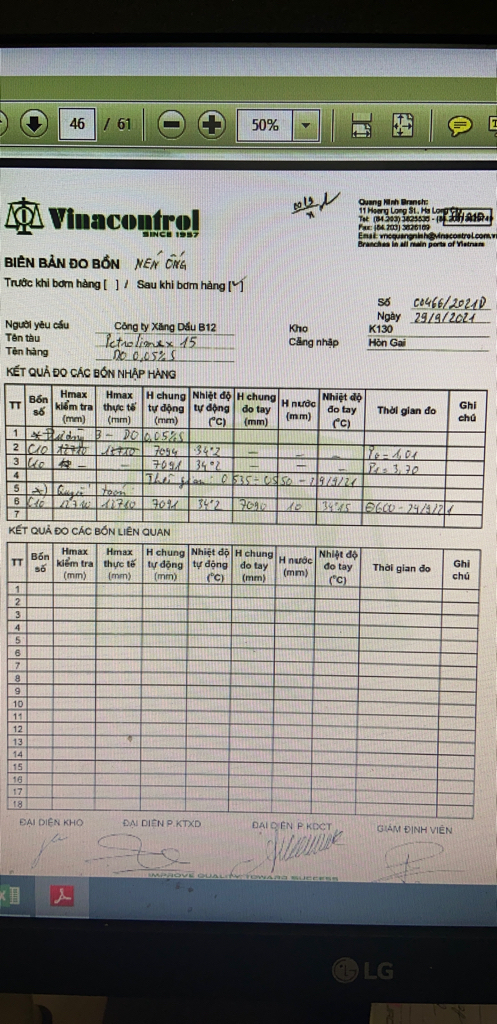 46 / 61 50%
Vinacontrol
SINCE 1957
Quang Ninh Branch:
11 Hoang Long St., Ha Long City
Tel: (84.203) 3825535 -
Fax: (84.203) 3826169
Email: vncquangninh@vinacontrol.com.v
Branches in all main ports of Vietnam
BIÊN BẢN ĐO BỒN NÉN ỐNG
Trước khi bơm hàng [ ] / Sau khi bơm hàng [✓]
Số C0466/2021D
Ngày 29/9/2021
Người yêu cầu Công ty Xăng Dầu B12 Kho K130
Tên tàu Petrolimex 15 Cảng nhập Hòn Gai
Tên hàng DO 0,05%S
KẾT QUẢ ĐO CÁC BỒN NHẬP HÀNG
TT Bồn số Hmax kiểm tra (mm) Hmax thực tế (mm) H chung tự động (mm) Nhiệt độ tự động (°C) H chung đo tay (mm) H nước (mm) Nhiệt độ đo tay (°C) Thời gian đo Ghi chú
1 3 - DO 0,05%S
2 C10 12710 12710 7094 34°2 - - - P0 = 1,01
3 C10 - - 7091 34°2 - P1 = 3,70
4 Thời gian: 0535 - 0550 - 29/9/21
5 *) Quyết toán:
6 C10 12710 12710 7091 34°2 7090 10 34°15
7
KẾT QUẢ ĐO CÁC BỒN LIÊN QUAN
TT Bồn số Hmax kiểm tra (mm) Hmax thực tế (mm) H chung tự động (mm) Nhiệt độ tự động (°C) H chung đo tay (mm) H nước (mm) Nhiệt độ đo tay (°C) Thời gian đo Ghi chú
1
2
3
4
5
6
7
8
9
10
11
12
13
14
15
16
17
18
ĐẠI DIỆN KHO ĐẠI DIỆN P.KTXD ĐẠI DIỆN P.KDCT GIÁM ĐỊNH VIÊN
IMPROVE QUALITY TOWARD SUCCESS
LG